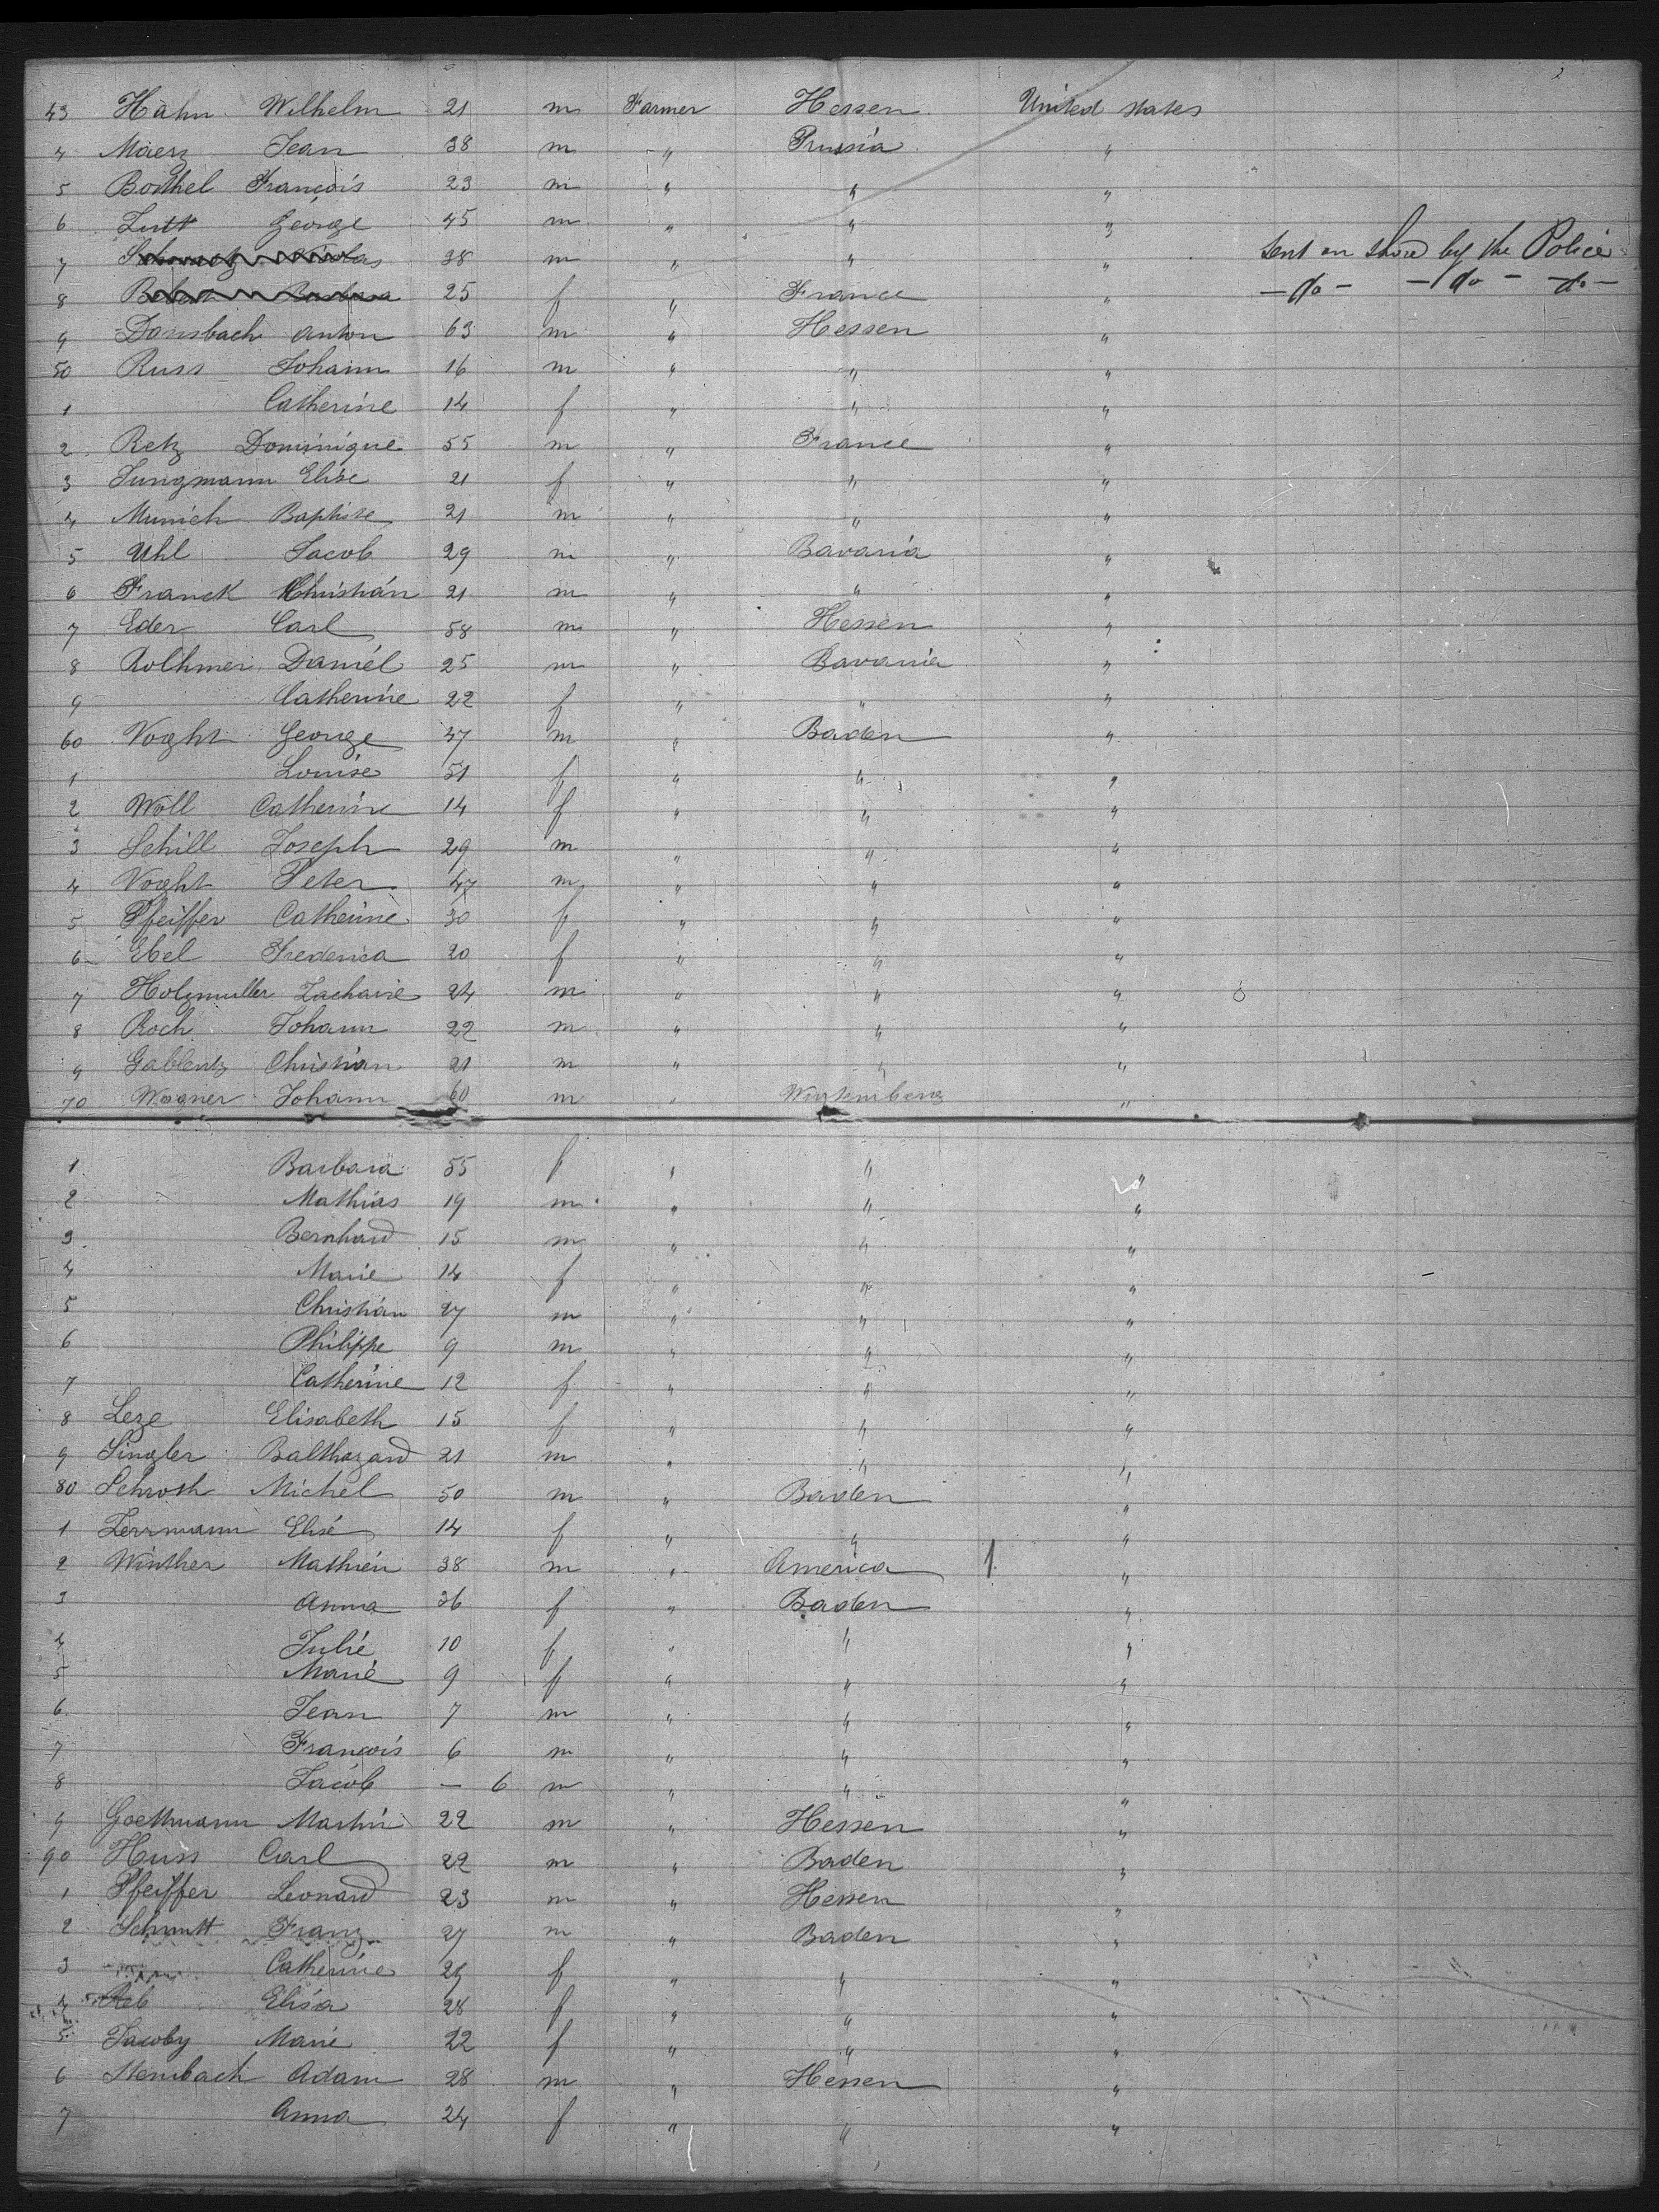 43 Hahn Wilhelm 21 m Farmer Hessen United States
4 Maerz Jean 38 m " Prussia "
5 Boithel François 23 m " " "
6 Lutt George 45 m " " "
7 Nicolas 38 m " " " Sent on Shore by the Police
8 Barbara 25 f " France " - do - - do - - do -
9 Dansbach Anton 63 m " Hessen "
50 Russ Johann 16 m " " "
1 Catherine 14 f " " "
2 Retz Dominique 55 m " France "
3 Jungmann Elise 21 f " " "
4 Munich Baptiste 21 m " " "
5 Uhl Jacob 29 m " Bavaria "
6 Franck Christian 21 m " " "
7 Eder Carl 58 m " Hessen "
8 Rolhmer Daniel 25 m " Bavaria "
9 Catherine 22 f " " "
60 Voght George 47 m " Baden "
1 Louise 51 f " " "
2 Woll Catherine 14 f " " "
3 Schill Joseph 29 m " " "
4 Voght Peter 47 m " " "
5 Pfeiffer Catherine 30 f " " "
6 Ebel Frederica 20 f " " "
7 Holzmuller Zacharie 24 m " " "
8 Roch Johann 22 m " " "
9 Gablentz Christian 21 m " " "
70 Wagner Johann 60 m " Wurtemberg "
1 Barbara 55 f " " "
2 Mathias 19 m " " "
3 Bernhard 15 m " " "
4 Marie 14 f " " "
5 Christian 27 m " " "
6 Philippe 9 m " " "
7 Catherine 12 f " " "
8 Leze Elisabeth 15 f " " "
9 Singler Balthazard 21 m " " "
80 Schroth Michel 50 m " Baden "
1 Zerrmann Elise 14 f " " "
2 Winther Mathieu 38 m " America 1 "
3 Anna 36 f " Baden "
4 Julie 10 f " " "
5 Marie 9 f " " "
6 Jean 7 m " " "
7 François 6 m " " "
8 Jacob - 6 m " " "
9 Goettmann Martin 22 m " Hessen "
90 Huss Carl 22 m " Baden "
1 Pfeiffer Leonard 23 m " Hessen "
2 Schmitt Franz 27 m " Baden "
3 Catherine 25 f " " "
4 Reb Elisa 28 f " " "
5 Jacoby Marie 22 f " " "
6 Steinbach Adam 28 m " Hessen "
7 Anna 24 f " " "